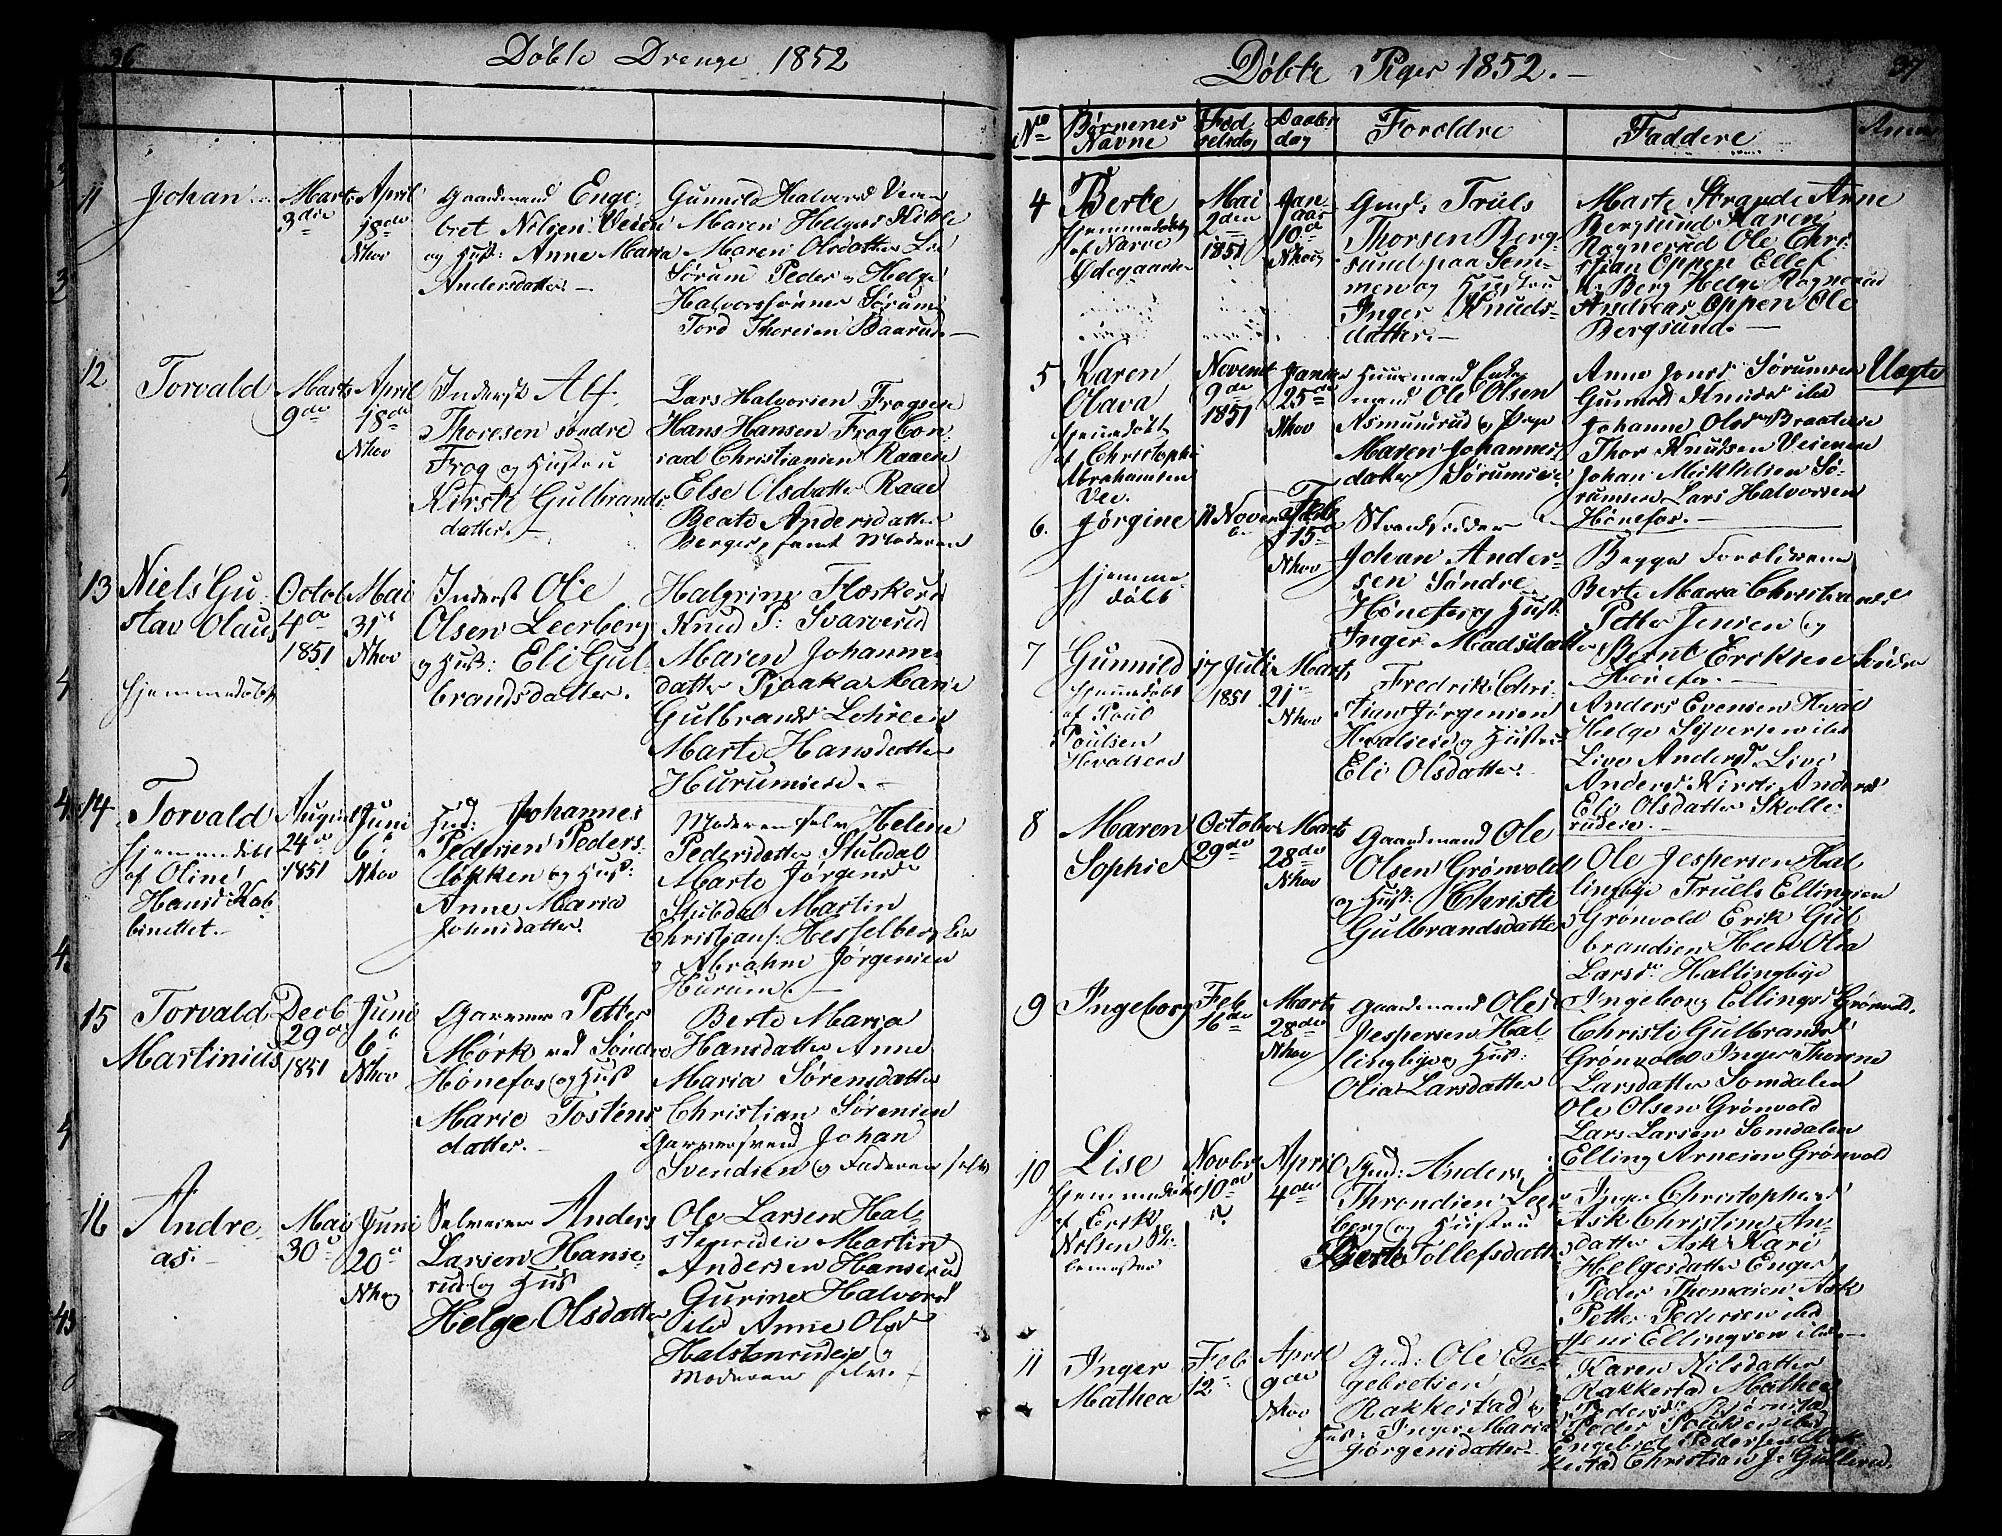 36
Døbte Drenge 1852
11
Johan
Marts
3die
April
18de
Nhov
Gaardmand Enge-
bret Nilsen Veien
og Hust: Anne Maria
Andersdatter.
Gunnild Halvord Veien
Maren Helges
Maren Olsdatter
Sørum Peder og Helge
Halvorssønner Sørum
Tord Thoresen Baarud.
12
Torvald
Marts
9de
April
18de
Nhov
Inderst Alf
Thoresen søndre
Frog og Hustru
Kirsti Gulbrands-
datter.
Lars Halvorsen Frogseie
Hans Hansen Frog Con-
rad Christiansen Raaen
Else Olsdatter Raae
Beate Andersdatter
Berger, samt Moderen
13
Niels Gu-
stav Olaus
hjemmedøbt
Octob
4de
1851
Mai
31te
Nhov
Inderst Ole
Olsen Leerberg
og Hust: Eli Gul-
brandsdatter.
Halgrim Flaskerud
Knud P: Svarverud
Maren Johanne
datter Pjaaka Marie
Gulbrands Lehreein
Marte Hansdatter
Hurumseie.
14
Torvald
hjemmedøbt
af Oline
Hansd. Kab-
binettet.
August
24de
1851
Juni
6te
Nhov
Hmd: Johannes
Pedersen Peders-
løkken og Hust:
Anne Maria
Johnsdatter.
Moderen selv Helene
Pedersdatter Stubdal
Marte Jørgensd
Stubdal Martin
Christians: Hesselberg Eie
og Abraham Jørgensen
Hurum.
15
Torvald
Martinius
Decb
29de
1851
Juni
6te
Nhov
Garver Petter
Mørk ved Søndre
Hønefos og Hust
Marie Tostens-
datter.
Berte Maria
Hansdatter Anne
Maria Sørensdatter
Christian Sørensen
Garversvend Johan
Svendsen og Faderen selv
16
Andre-
as.
Mai
30te
Juni
20de
Nhov
Selveier Anders
Larsen Hanse-
rud og Hust
Helge Olsdatter
Ole Larsen Hal-
stenrudeie Martin
Andersen Hanserud
Gurine Halvorsd
ibd Anne Olsd
Halstenrudeie og
Moderen selv.
Døbte Piger 1852.
37
No
Børnenes
Navne
Fød-
selsdag
Daabs-
dag
Forældre
Faddere
Anm
4
Berte
hjemmedøbt
af Narve
Ødegaarden
Mai
2den
1851
Jan-
uar
10de
Nhov
Gmd: Truls
Thorsen Berg-
sund paa Sem-
men og Hustru
Inger Knuds-
datter.
Marte Strande Anne
Bergsund Maren
Rognerud Ole Chri-
stian Oppen Ellef
Berg Helge Rognerud
Andreas Oppen Ole
Bergsund.
5
Karen
Olava
hjemmedøbt
af Christopher
Abrahamsen
Vei.
Novemb
9de
1851
Januar
25de
Nhov
Huusmand Enke-
mand Ole Olsen
Asmundrud og Pige
Maren Johannes-
datter Sørumseie
Anne Jensd Sørumseie
Gunnild Knudsd ibd
Johanne Olsd Braateneie
Thor Knudsen Veieneie
Johan Mikkelsen Sø-
rumseie Lars Halvorsen
Hønefos.
Uægte
6.
Jørgine
hjemme-
døbt
11 Novem-
b.
Feb
15de
Nhov
Strandsidder
Johan Ander-
sen Søndre
Hønefos og Hust:
Inger Madsdatter
Begge Forældrene
Berte Maria Christiansd
Petter Jensen og
Bernt Eriksen Søndre
Hønefos.
7
Gunnild
hjemmedøbt
af Poul
Poulsen
Hvalseie
17 Juli
1851
Marts
21de
Nhov
Fredrik Chri-
stian Jørgensen
Hvalseie og Hustru
Eli Olsdatter.
Anders Evensen Hval
Helge Syversen ibd
Live Andersd Live
Andersd Kirsti Andersd
Eli Olsdatter Skolle-
rudeie.
8
Maren
Sophie
October
29de
Marts
28de
Nhov
Gaardmand Ole
Olsen Grønvold
og Hust: Christi
Gulbrandsdatter
Ole Jespersen Hal-
lingbye Truls Ellingsen
Grønvold Erik Gul-
brandsen Heen Olea
Larsd. Hallingbye
9
Ingeborg
Feb
16de
Marts
28de
Nhov
Gaardmand Ole
Jespersen Hal-
lingbye og Hust:
Olia Larsdatter
Ingeborg Ellingsd Grønvold,
Christi Gulbrandsd
Grønvold Inger Thorene
Larsdatter Somdalen
Ole Olsen Grønvold
Lars Larsen Somdalen
Elling Arnesen Grønvold
10
Lise
hjemmedøbt
af Erik
Nelsen Sko-
lemester
Novbr
10de
April
4de
Gmd: Anders
Throndsen Leer-
berg og Hustru
Berte Tollefsdatter
Inger Christophersd
Ask Christine An-
dsdatter Ask Kari
Helgesdatter Enger
Peder Thomesen Ask
Petter Pedersen ibd
Jens Ellingsen ibd.
11
Inger
Mathea
Feb
12te
April
9de
Nhov
Gmd: Ole En-
gebretsen
Rakkestad og
Hust: Inger Maria
Jørgensdatter.
Karen Nilsdatter
Rakkestad Mathea
Pedersd. Bjørnstad
Peder Poulsen ibd
Engebret Pedersen Rak-
kestad Christian J. Gullerud.